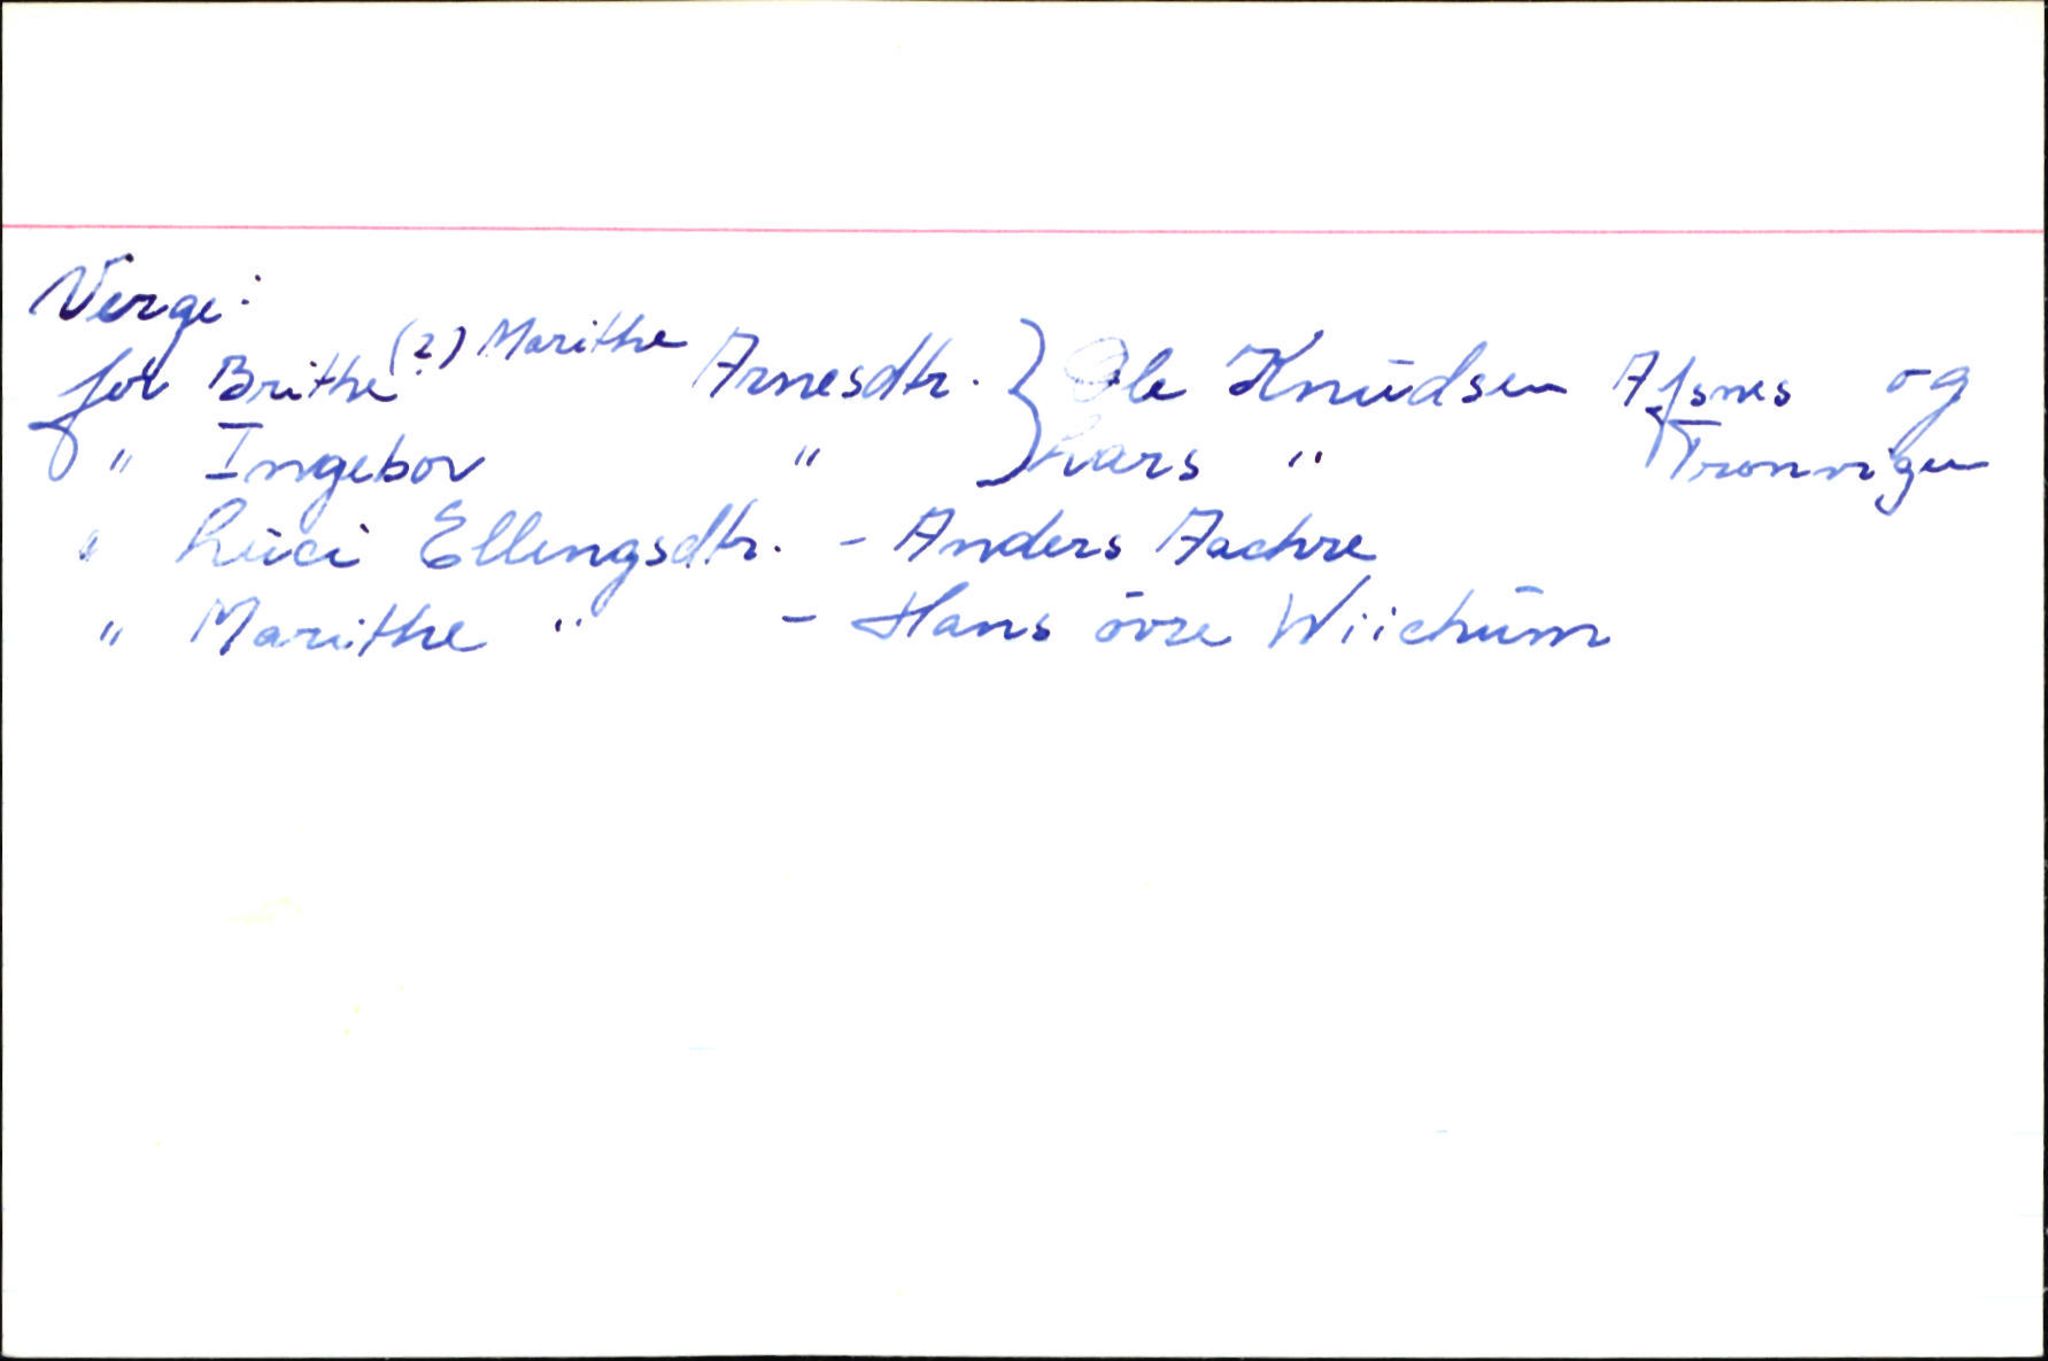 Verge:
for Brithe (?) Marithe Arnesdtr. } Ole Knudsen Afsnes og
" Ingebor " } Lars " Tronvigen
" Luci Ellengsdtr. - Anders Aachre
" Marithe " - Hans övre Wiichum